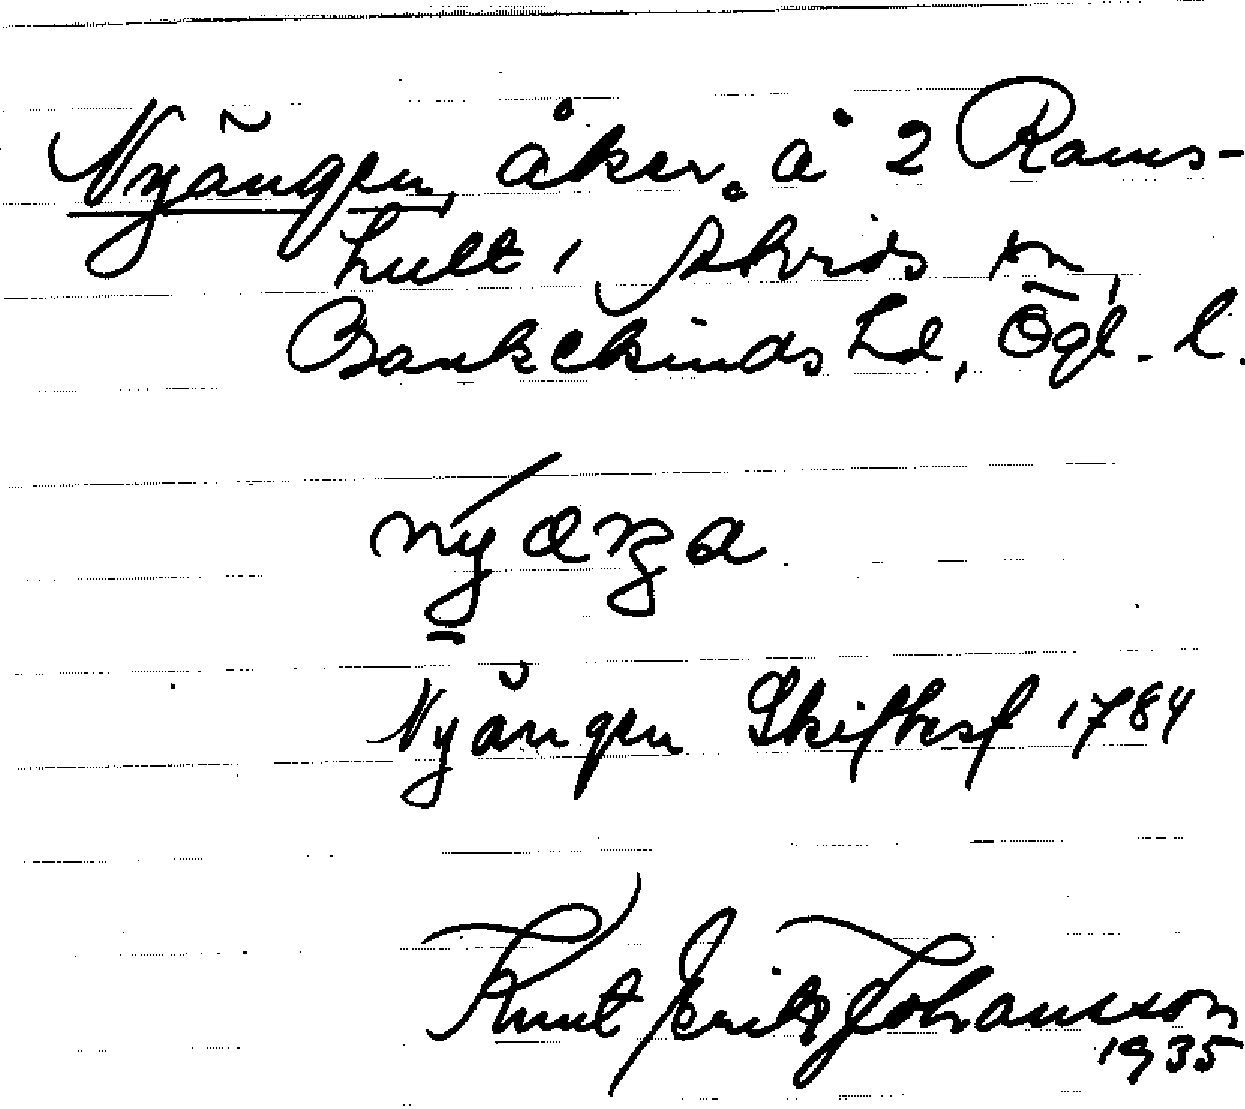 Nyängen, åker, å 2 Rams-
hult i Åtvids sn,
Bankekinds hd, Ögl. l.
Nyängen Skifteskf 1784
Knut Erik Johansson
1935